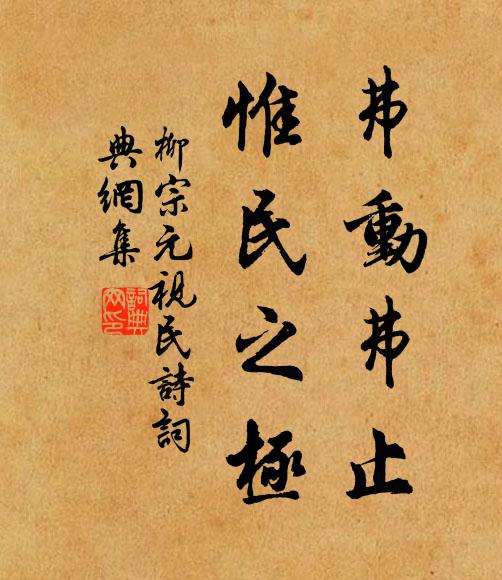 弗動弗止
惟民之極
柳宗元視民詩詞
典網集
詞典網印